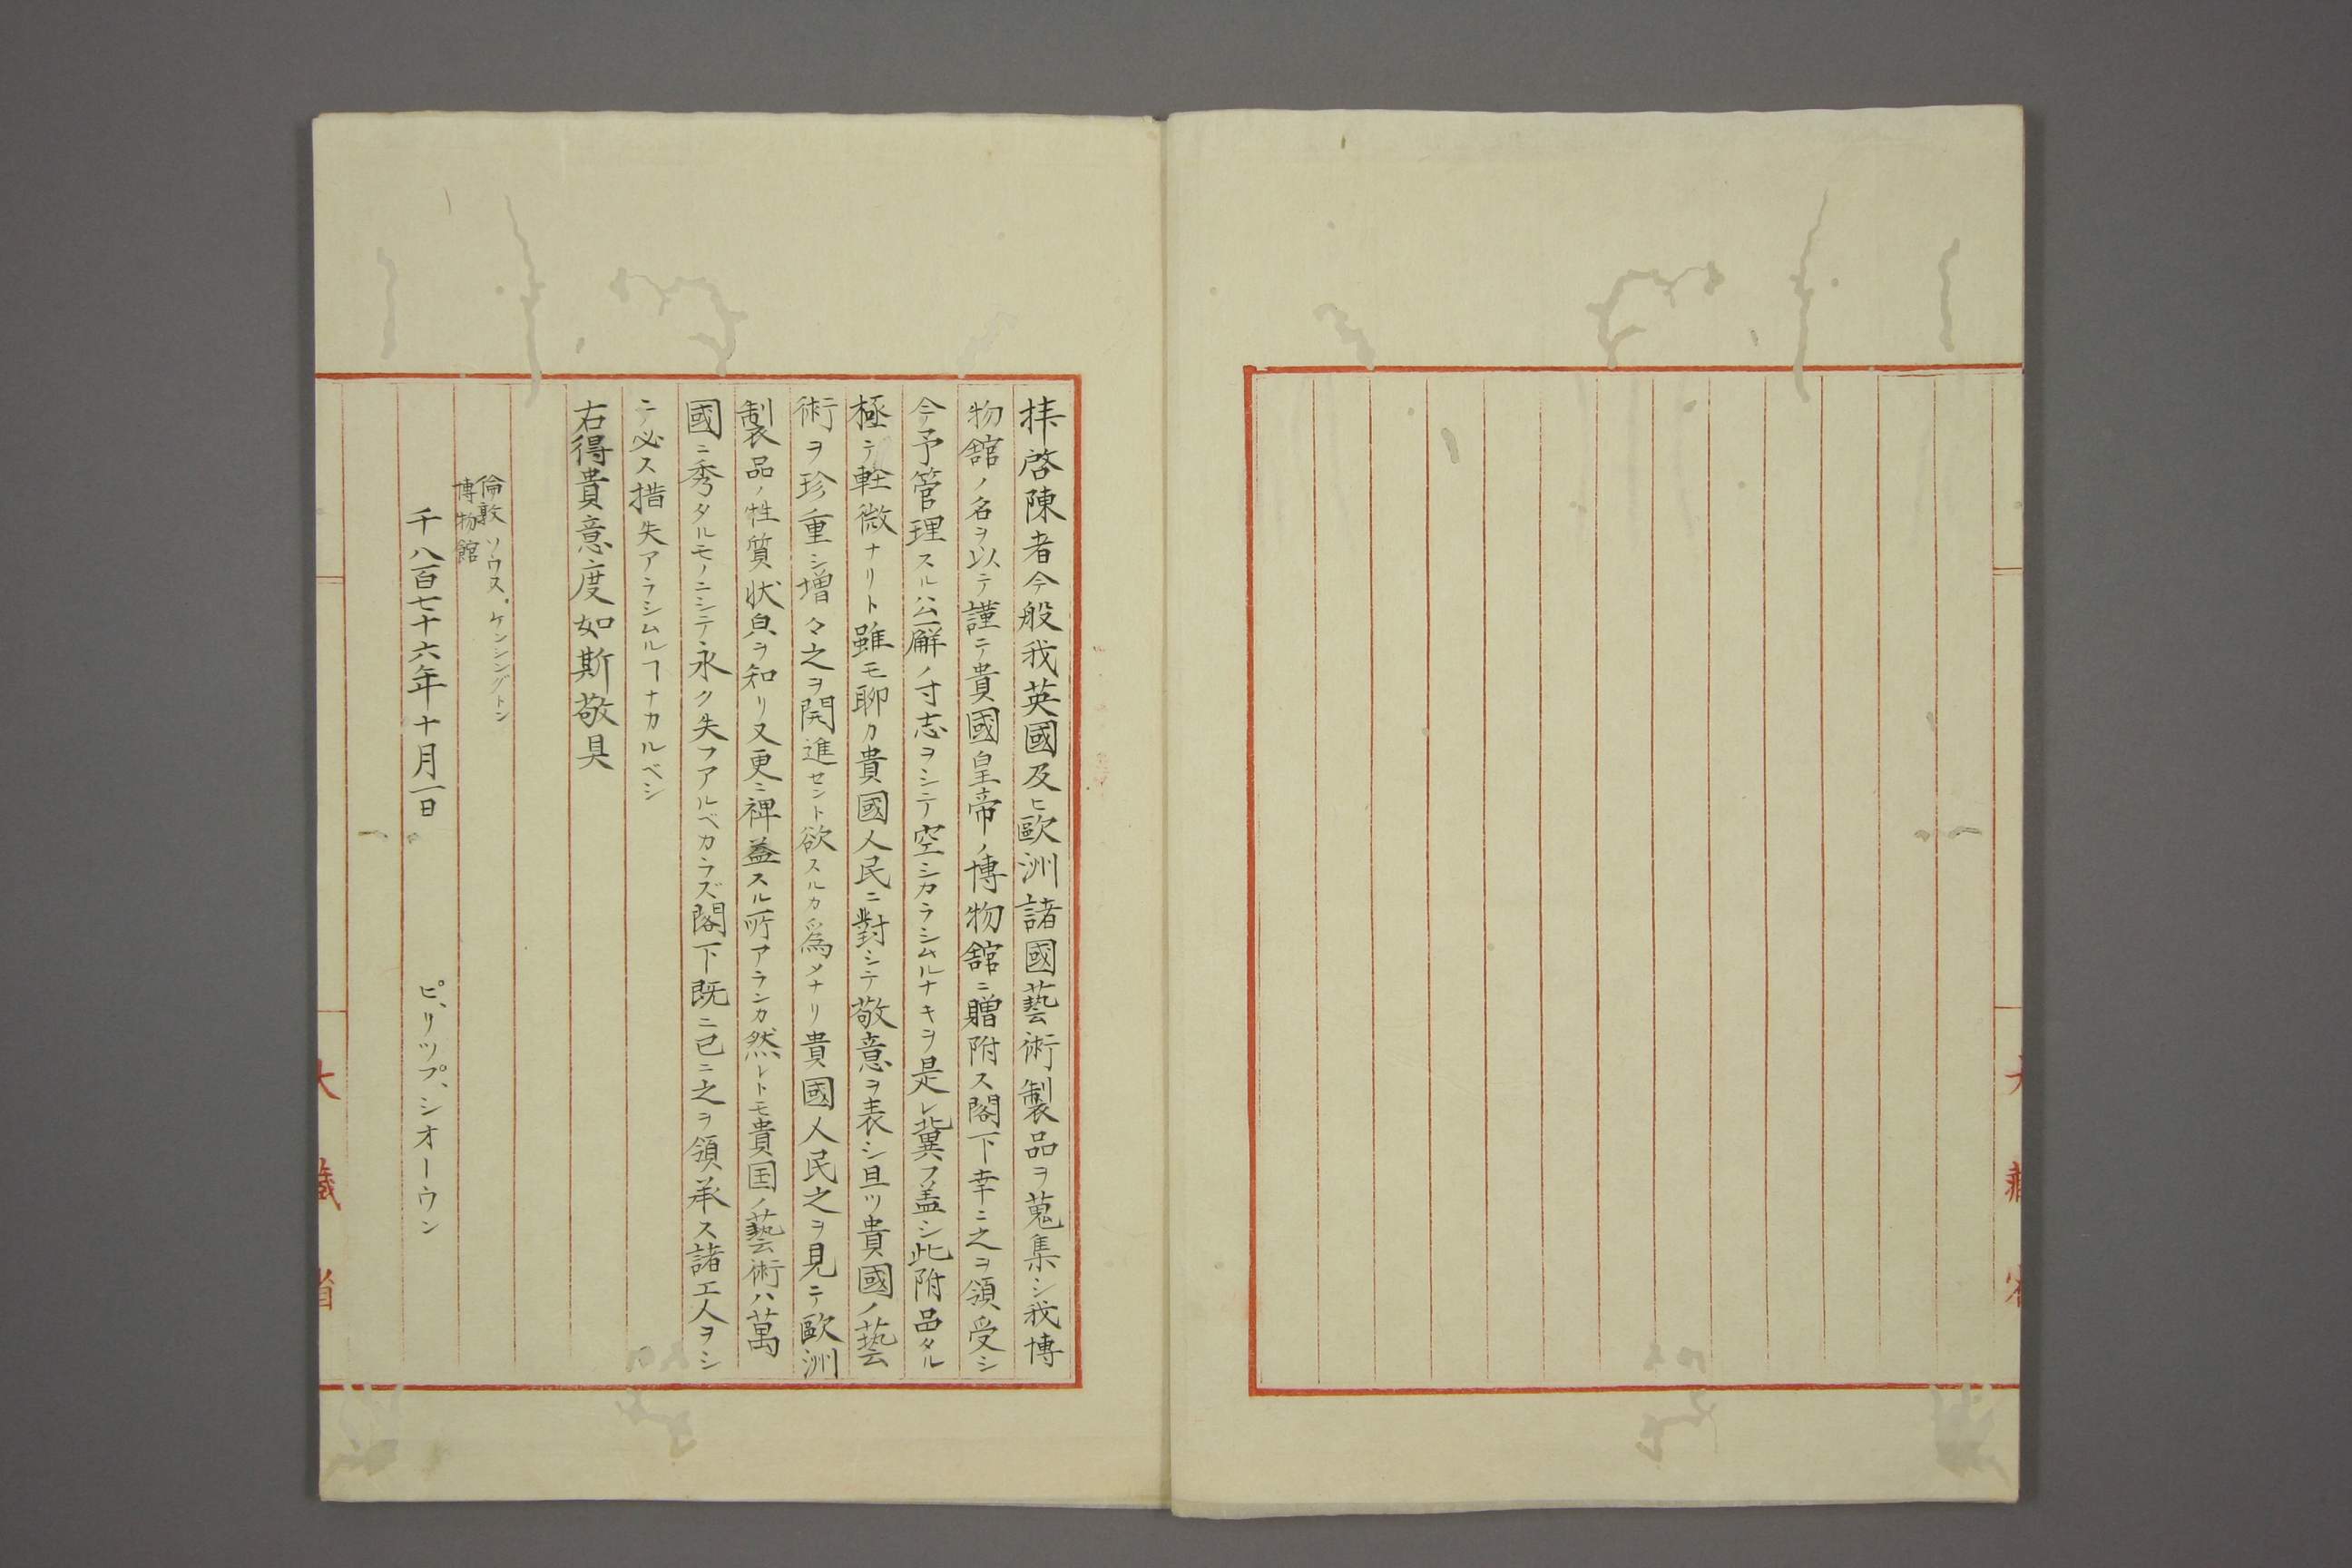 拝啓陳者今般我英國及ヒ歐洲諸國藝術製品ヲ蒐集シ我博
物舘ノ名ヲ以テ謹テ貴國皇帝ノ博物舘ニ贈附ス閣下幸ニ之ヲ領受シ
今予管理スル公廨ノ寸志ヲシテ空シカラシムルナキヲ是レ冀フ盖シ此附品タル
極テ軽微ナリト雖モ聊カ貴國人民ニ對シテ敬意ヲ表シ旦ツ貴國ノ藝
術ヲ珍重シ増々之ヲ開進セント欲スルカ爲メナリ貴國人民之ヲ見テ歐洲
製品ノ性質状皃ヲ知リ又更ニ裨益スル所アランカ然レトモ貴国ノ藝術ハ萬
國ニ秀タルモノニシテ永ク失フアルベカラズ閣下既ニ已ニ之ヲ領承ス諸工人ヲシ
テ必ス措失アラシムルヿナカルベシ
右得貴意度如斯敬具
倫敦ソウス。ケンシングトン
博物館
千八百七十六年十月一日
ピ、リツプ、シオーウン
大藏省